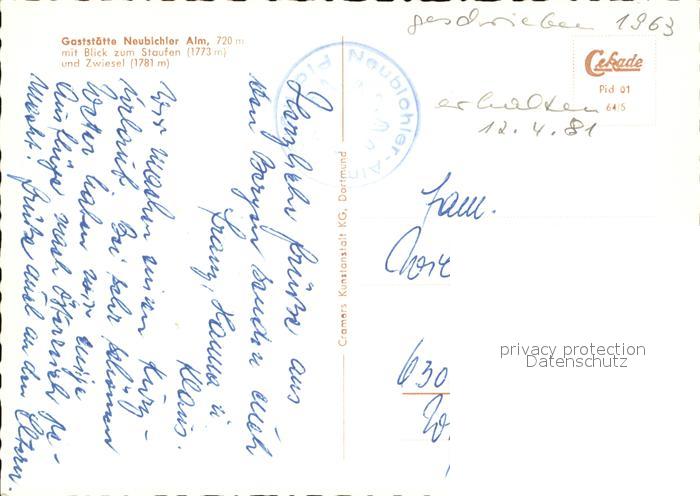 geschrieben 1963
Gaststätte Neubichler Alm, 720 m
mit Blick zum Staufen (1773 m)
und Zwiesel (1781 m)
Cekade
Pid 01
64/5
erhalten
12.4.81
Neubichler-Alm
Cramers Kunstanstalt KG, Dortmund
Herzliche Grüße aus
den Bergen senden euch
Franz, Hanna u
Klaus.
Wir machen einen Kurz-
urlaub. Bei sehr schönen
Wetter haben wir einige
Ausflüge nach Österreich ge-
macht. Grüße auch an den Eltern.
Fam.
630
W
privacy protection
Datenschutz